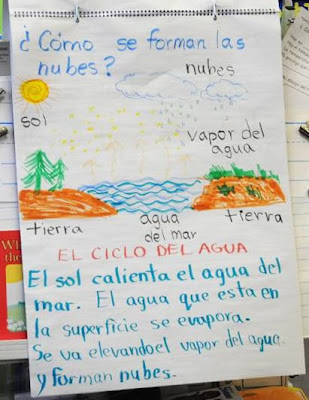 ¿Cómo se forman las
nubes?
nubes
sol
vapor del
agua
tierra
agua
del mar
tierra
EL CICLO DEL AGUA
El sol calienta el agua del
mar. El agua que esta en
la superficie se evapora.
Se va elevandoel vapor del agua
y forman nubes.